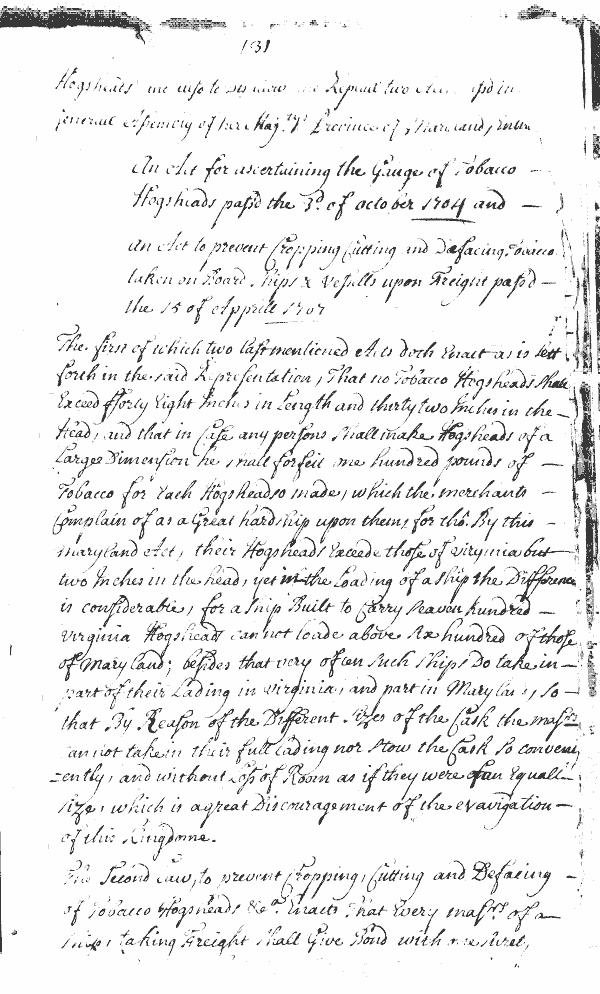 131
Hogsheads and also to Repeal two Acts pass'd in
General Assembly of her Maj.tys Province of Maryland,
An Act for ascertaining the Gauge of Tobacco
Hogsheads pass'd the 3d. of october 1704 and
An Act to prevent Cropping Cutting and Defacing Tobacco
taken on Board Ships & Vessells upon Freight pass'd
the 15 of Aprill 1707
The first of which two last mentioned Acts doth Enact as is sett
forth in the said Representation, That no Tobacco Hogsheads shall
Exceed fforty Eight Inches in Length and thirty two Inches in the
Head, and that in Case any persons shall make Hogsheads of a
Larger Dimension he shall forfeit one hundred pounds of
Tobacco for Each Hogshead so made, which the merchants
Complain of as a Great hardship upon them, for tho. By this
Maryland Act, their Hogsheads Exceede those of Virginia but
two Inches in the head, yet in the Loading of a ship the Difference
is considerable, for a Ship Built to Carry seaven hundred
Virginia Hogsheads cannot loade above six hundred of those
of Maryland; besides that very often such ships Do take in
part of their Lading in Virginia, and part in Maryland, so
that By Reason of the Different sizes of the Cask the masrs.
cannot take in their full Lading nor stow the Cask so conveni
=ently, and without Loss of Room as if they were of an Equall
size, which is a great Discouragement of the Navigation
of this Kingdome.
The Second Law, to prevent Cropping, Cutting and Defacing
of Tobacco Hogsheads &ca. Enacts That Every masr. of a
Ship, taking Freight shall Give Bond with one suret,